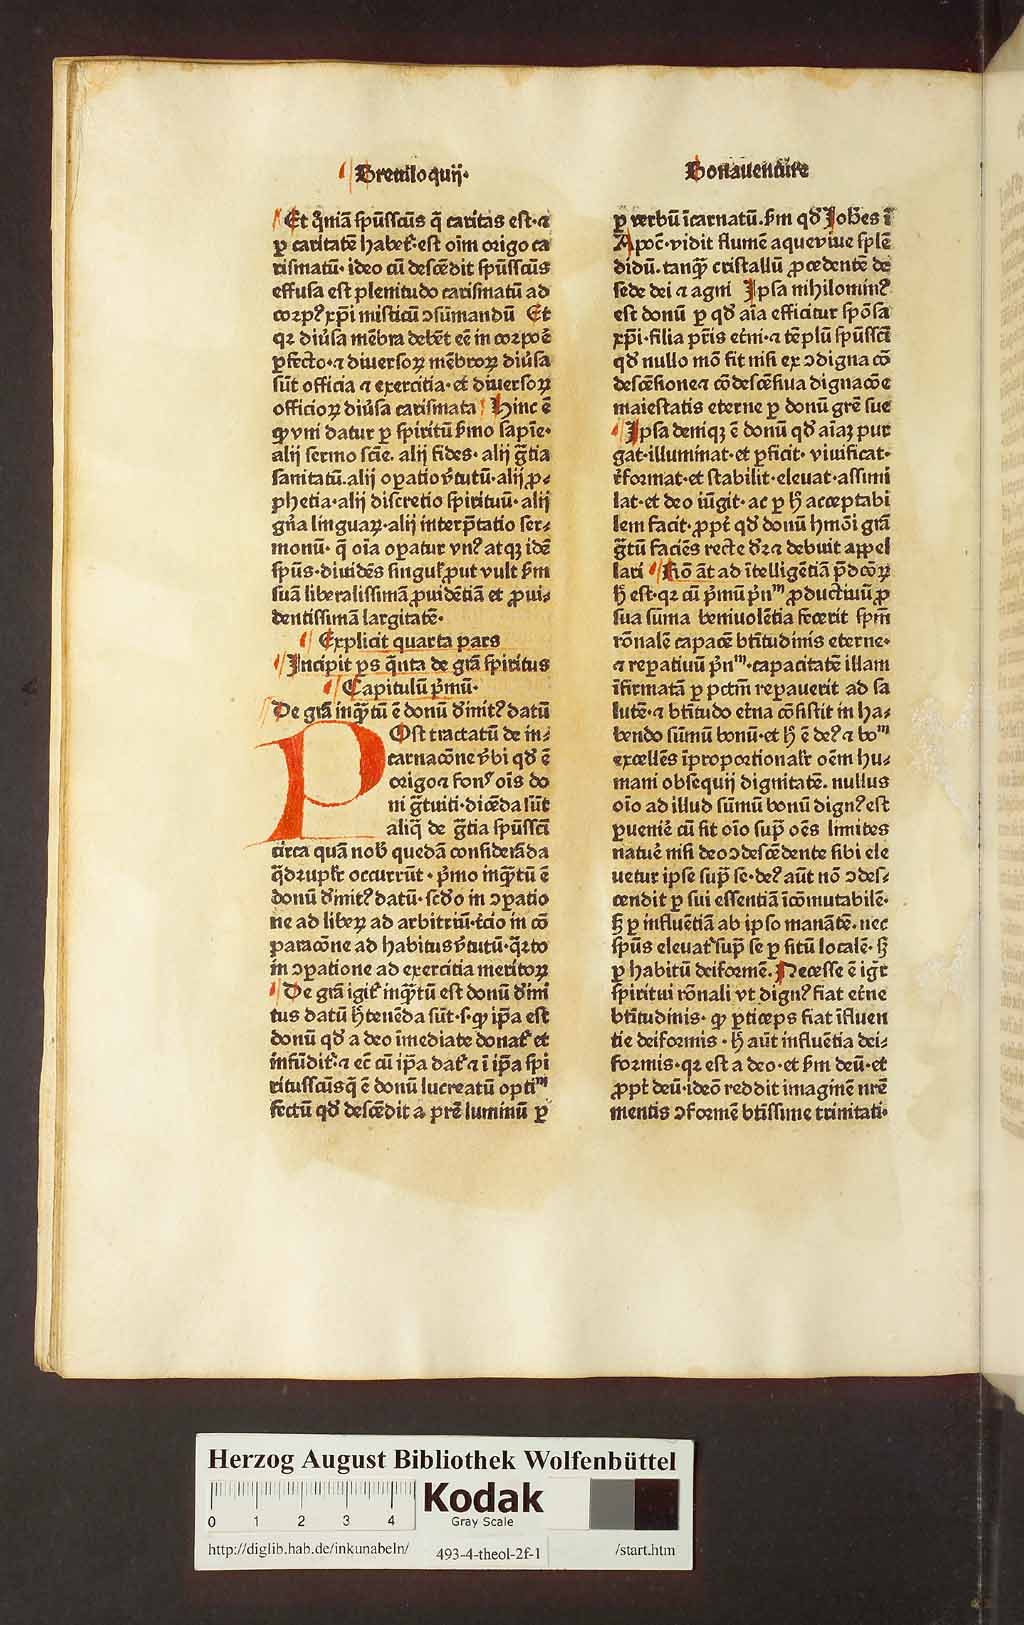 Breuiloquij·
Et qm̄iā spūsscūs q̄ caritas est·ꞇ
ꝑ caritatē habet᷑·est oīm origo ca
rismatū· ideo cū descēdit spūsscūs
effusa est plenitudo carismatū ad
corpꝰ xp̄i misticū ↄsūmandū Et
qꝛ diu̓sa mēbra debēt eē in corpoē
ꝑfecto·ꞇ diuersoꝝ mēbroꝝ diu̓sa
sūt officia ꞇ exercitia·et diuersoꝝ
officioꝝ diu̓sa carismata Hinc ē
ꝙ vni datur ꝑ spiritū ẜmo sapīe·
alij sermo scīe. alij fides· alij gr̄tia
sanitatū.alij oꝑatio v̓tutū·alij ꝓ⸗
phetia·alij discretio spirituū·alij
gn̓a linguaꝝ·alij interp̄tatio ser⸗
monū· q̄ oīa oꝑatur vnꝰ atqꝫ idē
spūs·diuidēs singul᷑ ꝓut vult ẜm
suā liberalissimā ꝓuidētiā et ꝓui⸗
dentissimā largitatē·
Explicit quarta pars
Incipit ꝑs q̄nta de grā spiritus
Capitulū p̄mū·
De grā inqᷓtū ē donū d̓initꝰ datū
POst tractatū de in⸗
carnacōne v̓bi qđ ē
origo ꞇ fons oīs do
ni gr̄tuiti·dicēda sūt
aliq̄ de gr̄tia spūsscī
circa quā nob̓ quedā considerāda
q̄drupl᷑r occurrūt · p̄mo inqᷓtū ē
donū d̓initꝰ datū·scđo in ↄꝑatio
ne ad liberꝝ ad arbitriū·t̓cio in cō
ꝑaracōne ad habitus v̓tutū·q̄rto
in ↄꝑatione ad exercitia meritoꝝ
De grā igit᷑ inqᷓtū est donū d̓ini
tus datū h̓ tenēda sūt·s·ꝙ ip̄a est
donū qđ a deo īmediate donat᷑ et
infūdit᷑·ꞇ ec̄ cū ip̄a dat᷑ ꞇ ī ip̄a spi
ritusscūs q̄ ē donū īucreatū optīᵐ
fectū qđ descēdit a prē luminū ꝑ
Bonauenture
ꝑ verbū īcarnatū.ẜm qđ Joh̄es ī
Apoc̄·vidit flumē aque viue splē
didū. tanqᷓ cristallū ꝓcedentē de
sede dei ꞇ agni Ipsa nihilominꝰ
est donū ꝑ qđ aīa efficitur spōsa
xp̄i·filia pr̄is et̓ni·ꞇ tēplū spūsscī
qđ nullo mō fit nisi ex ↄdigna cō
descēsione ꞇ cōdescēsiua dignacōe
maiestatis eterne ꝑ donū grē sue
Ipsa deniqꝫ ē donū qđ aīaꝫ pur
gat·illuminat·et ꝑficit· viuificat·
r̓format·et stabilit·eleuat·assimi
lat·et deo iūgit· ac ꝑ h̓ acceptabi
lem facit·ꝓpt̓ qđ donū hm̄oi grā
gr̄tū faciēs recte d̓r ꞇ debuit appel
lari Rō āt ad ītelligētiā p̄dcōꝝ
h̓ est·qꝛ cū p̄mū p̄nᵐ ꝓductiuū ꝓ
sua sūma beniuolētia fecerit spm̄
rōnalē capacē btītudinis eterne·
ꞇ reꝑatiuū p̄nᵐ·capacitatē illam
īfirmatā ꝑ pctm̄ reꝑauerit ad sa
lutē·ꞇ btītudo et̓na cōsistit in ha⸗
bendo sūmū bonū·et h̓ ē deꝰ·ꞇ boᵐ
excellēs īproportional᷑r oēm hu⸗
mani obsequij dignitatē. nullus
oīo ad illud sūmū bonū dignꝰ est
ꝑuenire̓ cū sit oīo supᷓ oēs limites
natur̓e nisi deo ↄdescēdente sibi ele
uetur ipse supᷓ se·deꝰ aūt nō ↄdes⸗
cendit ꝑ sui essentiā īcōmutabilē·
ẜ ꝑ influētiā ab ipso manātē· nec
spūs eleuat᷑ supᷓ se ꝑ sitū localē· ẜ
ꝑ habitū deiformē. Necesse ē igr̄
spiritui rōnali vt dignꝰ fiat et̓ne
btītudinis· ꝙ ꝑticeps fiat īfluen
tie deiformis · h̓ aūt influētia dei⸗
formis·qꝛ est a deo·et ẜm deū·et
ꝓpt̓ deū·ideo reddit imaginē nrē
mentis ↄformē btīssime trinitati·
Herzog August Bibliothek Wolfenbüttel
0 1 2 3 4
Kodak
Gray Scale
http://diglib.hab.de/inkunabeln/ 493-4-theol-2f-1 /start.htm